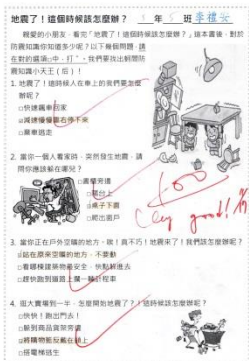 地震了！這個時候該怎麼辦？ 5年5班
親愛的小朋友，看完「地震了！這個時候該怎麼辦？」這本書後，對於
防震知識你知道多少呢？以下幾個問題，請
在對的選項□中，打ˇ，我們要找出躺防
震知識小天王（后）！
1. 地震了！這時候人在車上的我們要怎麼
辦呢？
□快速飆車回家
減速慢慢靠右停下來
□棄車逃走
2. 當你一個人看家時，突然發生地震，請
問你應該躲在哪兒？
□書櫃旁邊
□窗台上
桌子下面
□爬出窗戶
100
Very good!
3. 當你正在戶外空曠的地方，唉！真不巧！地震來了！我們該怎麼辦呢？
站在原來空曠的地方，不要動
□看哪棟建築物最安全，快點躲進去
□趕快跑到馬路上攔一輛計程車
4. 逛大賣場到一半，怎麼開始地震了？！這時候該怎麼辦呢？
□快快！跑出門去！
□躲到商品貨架旁邊
將購物籃反戴在頭上
□搭電梯逃生